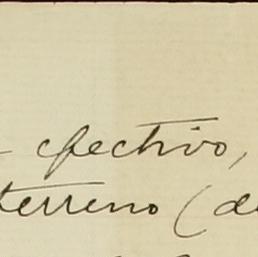 efectivo,
terreno (de